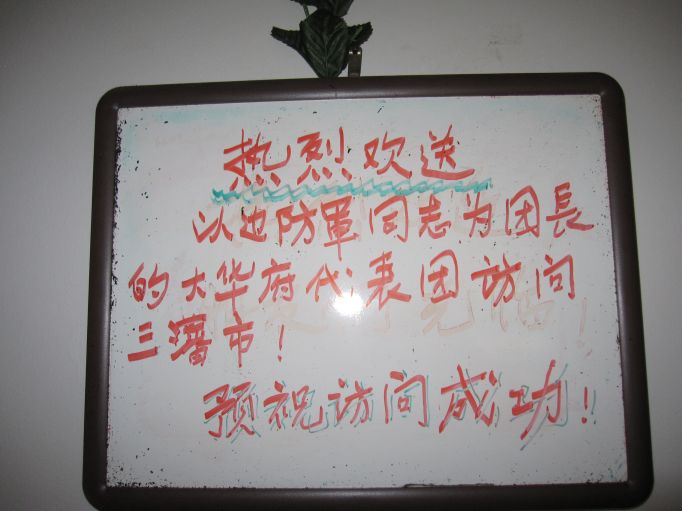 热烈欢送
以边防軍同志为团長
的大华府代表团访问
三藩市！
预祝访问成功！